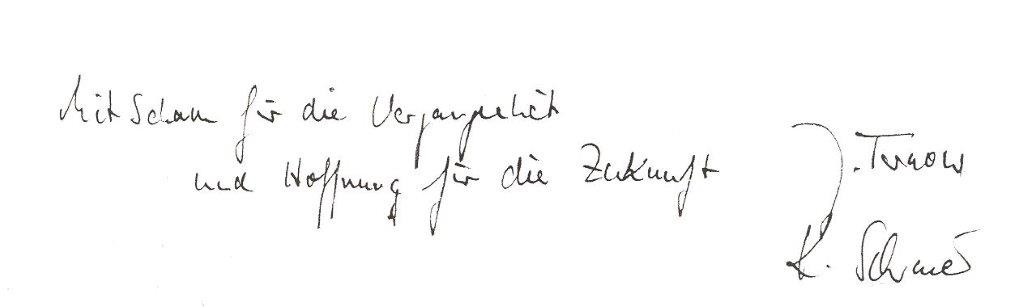 Mit Scham für die Vergangenheit
und Hoffnung für die Zukunft
J.
K.